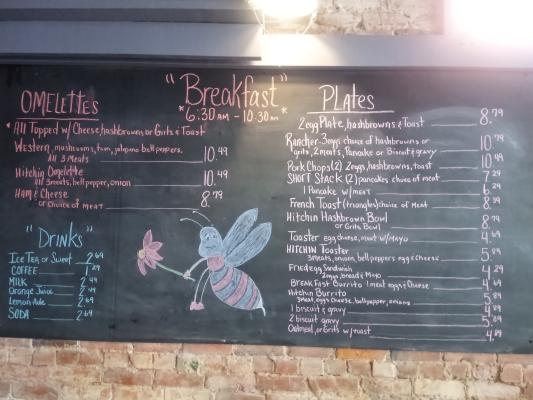 "Breakfast"
*6:30 AM - 10:30 AM*
OMELETTES
* All Topped w/ Cheese, hashbrowns or Grits & Toast
Western, mushrooms, tom, jalapino bell peppers,
All 3 Meats 10.49
Hitchin Omelette
All 3meats, bell pepper, onion 10.49
Ham & Cheese
or choice of meat 8.79
"Drinks"
Ice Tea or Sweet 2.69
COFFEE 1.29
MILK 2.49
Orange Juice 2.49
Lemon-Ade 2.69
SODA 2.69
PLATES
2 egg Plate, hashbrowns & Toast 8.79
Rancher-3 eggs choice of hashbrowns or
grits, 2 meats, Pancake or Biscuit & gravy 10.79
Pork Chops (2) 2 eggs, hashbrowns, toast 10.49
SHORT STACK (2) pancakes choice of meat 7.29
1 Pancake w/ meat 6.29
French Toast (triangles) choice of Meat 8.39
Hitchin Hashbrown Bowl
or Grits Bowl 8.79
Toaster egg, cheese, meat w/ mayo 4.69
HITCHIN Toaster
3 meats, onion, bell peppers egg & cheese 5.89
Fried egg Sandwich
2 eggs, bread & Mayo 4.29
BREAKFAST Burrito 1 meat eggs & Cheese 4.69
Hitchin Burrito
3 meat, eggs, cheese, bell pepper, onions 5.89
1 biscuit & gravy 4.89
2 biscuit gravy 5.89
Oatmeal, or Grits w/ toast 4.89